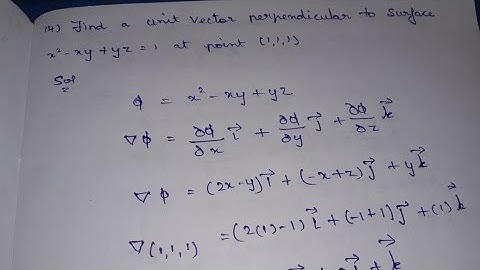 14) Find a unit vector perpendicular to surface
x² - xy + yz = 1 at point (1,1,1)
Sol
ϕ = x² - xy + yz
∇ϕ = ∂ϕ/∂x i⃗ + ∂ϕ/∂y j⃗ + ∂ϕ/∂z k⃗
∇ϕ = (2x-y)i⃗ + (-x+z)j⃗ + yk⃗
∇(1,1,1) = (2(1)-1)i⃗ + (-1+1)j⃗ + (1)k⃗